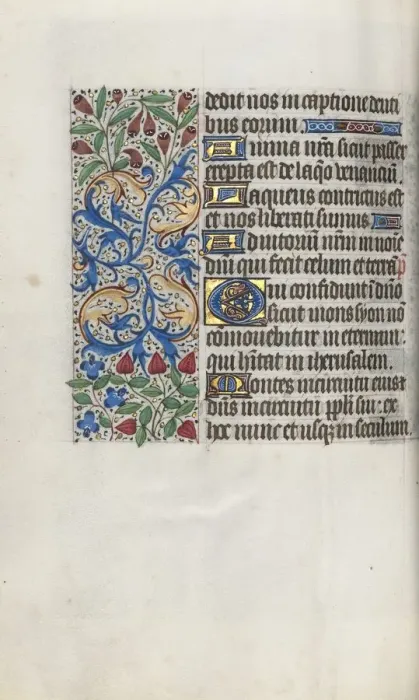 dedit nos in captione denti
bus eorum.
Anima nr̄a sicut passer
erepta est de laq̄o venanciū.
Laqueus contritus est
et nos liberati sumus
Adiutoriū nr̄m in noīe
dn̄i qui fecit celum et terrā
Qui confidunt ī dn̄o
sicut mons syon nō
comouebitur in eternum:
qui hītat in iherusalem.
Montes in circuitu eius et
dn̄s in circuitu ppl̄i sui: ex
hoc nunc et usq̄ in seculum.